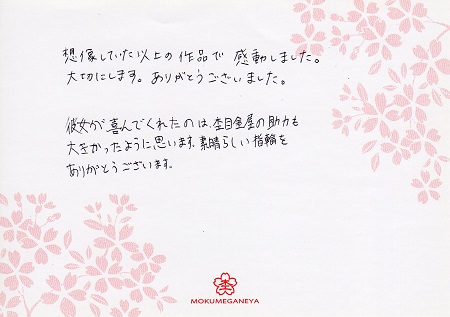 想像していた以上の作品で 感動しました。
大切にします。ありがとうございました。
彼女が喜んでくれたのは、杢目金屋の助力も
大きかったように思います。素晴らしい指輪を
ありがとうございます。
杢
MOKUMEGANEYA